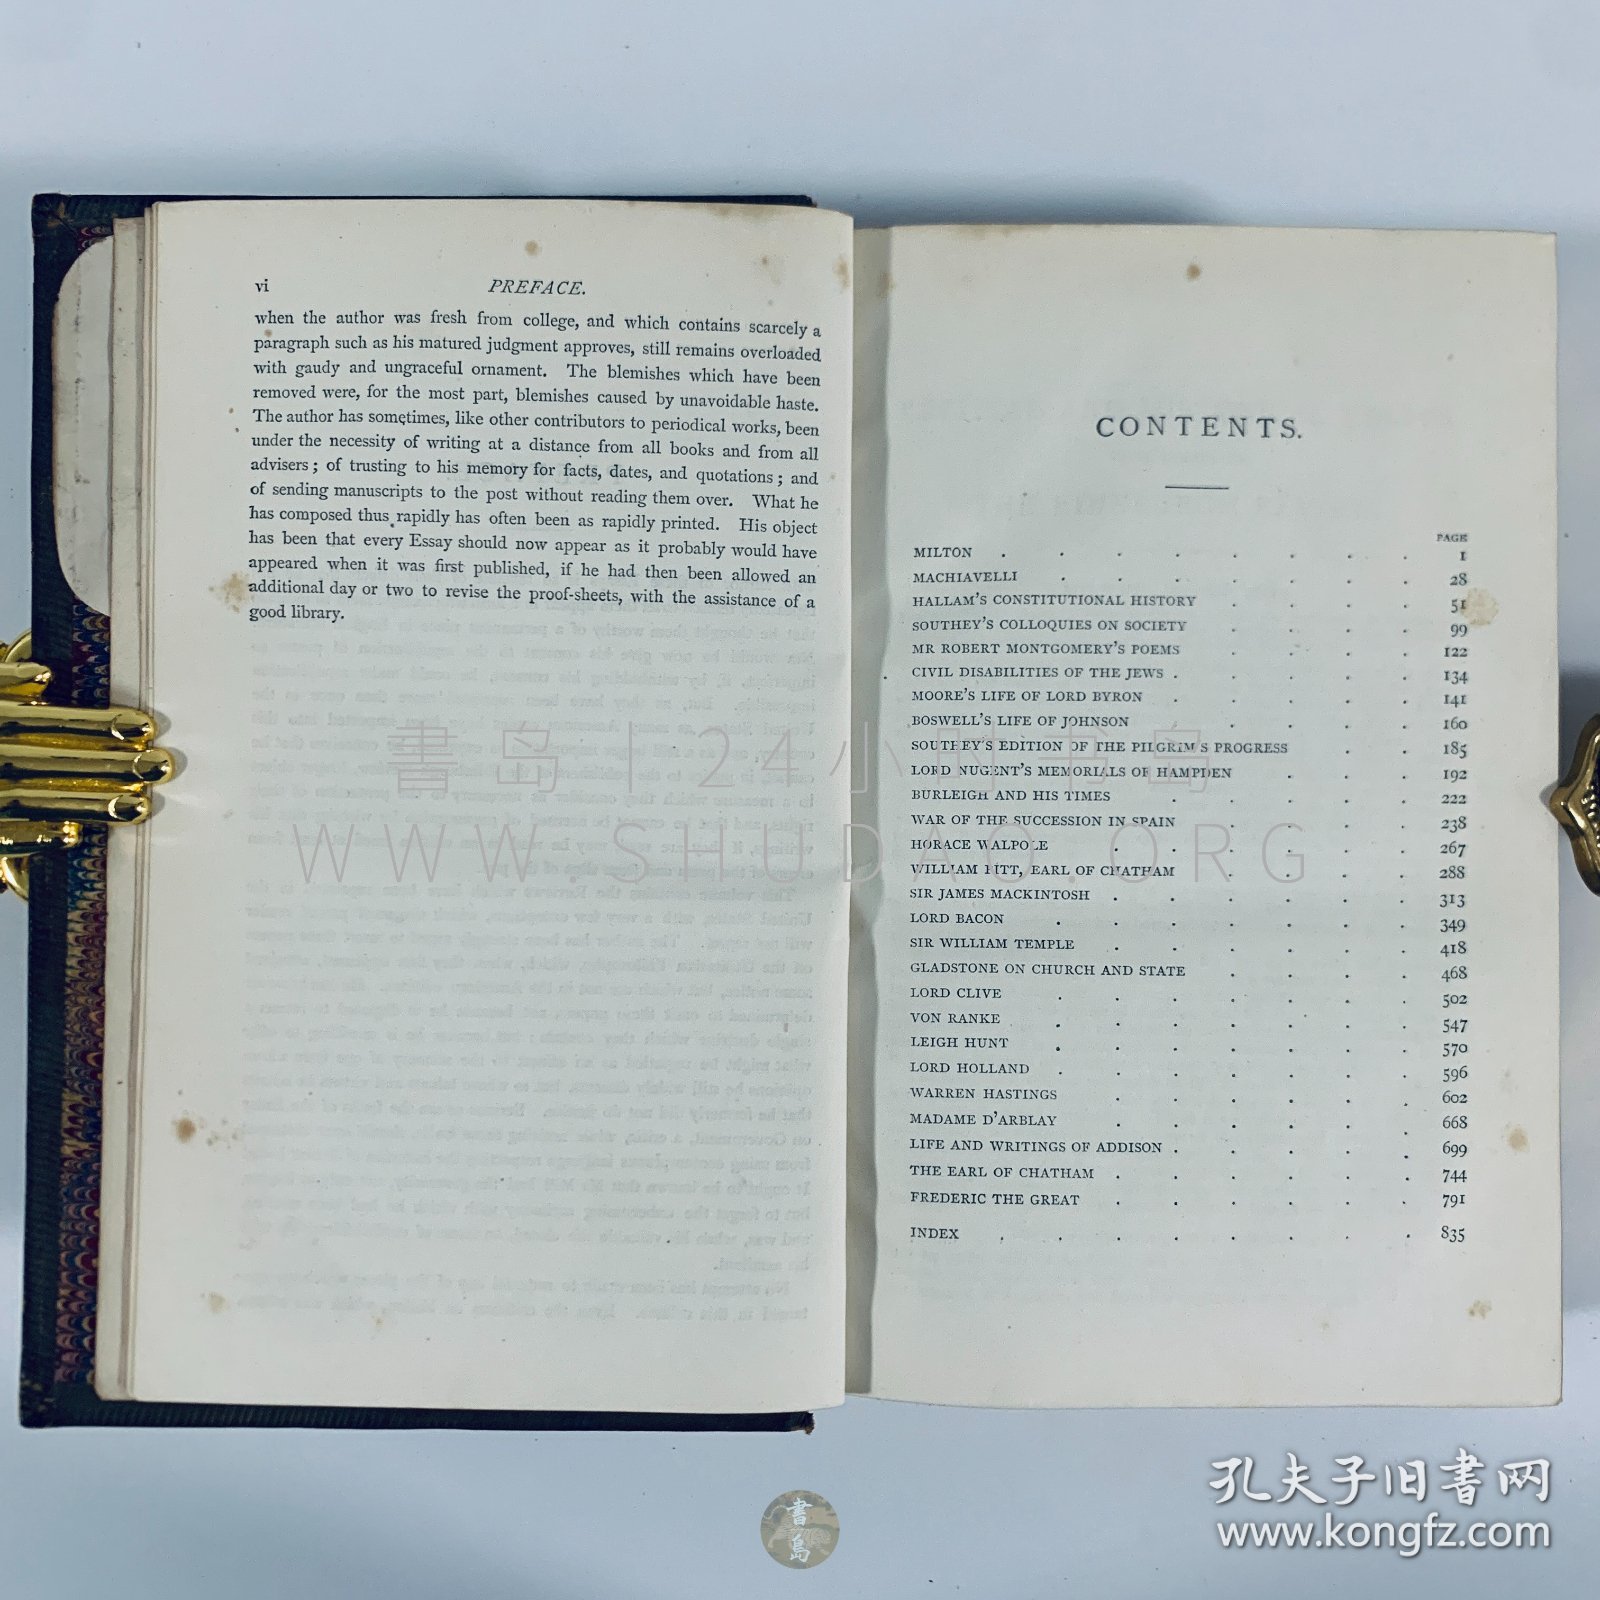 vi
PREFACE.
when the author was fresh from college, and which contains scarcely a
paragraph such as his matured judgment approves, still remains overloaded
with gaudy and ungraceful ornament. The blemishes which have been
removed were, for the most part, blemishes caused by unavoidable haste.
The author has sometimes, like other contributors to periodical works, been
under the necessity of writing at a distance from all books and from all
advisers; of trusting to his memory for facts, dates, and quotations; and
of sending manuscripts to the post without reading them over. What he
has composed thus rapidly has often been as rapidly printed. His object
has been that every Essay should now appear as it probably would have
appeared when it was first published, if he had then been allowed an
additional day or two to revise the proof-sheets, with the assistance of a
good library.
CONTENTS.
PAGE
MILTON . . . . . . . . 1
MACHIAVELLI . . . . . . . 28
HALLAM'S CONSTITUTIONAL HISTORY . . . . 51
SOUTHEY'S COLLOQUIES ON SOCIETY . . . . 99
MR ROBERT MONTGOMERY'S POEMS . . . . 122
CIVIL DISABILITIES OF THE JEWS . . . . . 134
MOORE'S LIFE OF LORD BYRON . . . . . 141
BOSWELL'S LIFE OF JOHNSON . . . . 160
SOUTHEY'S EDITION OF THE PILGRIM'S PROGRESS . . 185
LORD NUGENT'S MEMORIALS OF HAMPDEN . . . 192
BURLEIGH AND HIS TIMES . . . . . 222
WAR OF THE SUCCESSION IN SPAIN . . . . 238
HORACE WALPOLE . . . . . . 267
WILLIAM PITT, EARL OF CHATHAM . . . . 288
SIR JAMES MACKINTOSH . . . . . . 313
LORD BACON . . . . . . . 349
SIR WILLIAM TEMPLE . . . . . . 418
GLADSTONE ON CHURCH AND STATE . . . . 468
LORD CLIVE . . . . . . . 502
VON RANKE . . . . . . . 547
LEIGH HUNT . . . . . . . 570
LORD HOLLAND . . . . . . . 596
WARREN HASTINGS . . . . . . 602
MADAME D'ARBLAY . . . . . . 668
LIFE AND WRITINGS OF ADDISON . . . . . 699
THE EARL OF CHATHAM . . . . . . 744
FREDERIC THE GREAT . . . . . . 791
INDEX . . . . . . . . 835
書岛 | 24小时书岛
WWW.SHUDAO.ORG
書岛
孔夫子旧書网
www.kongfz.com